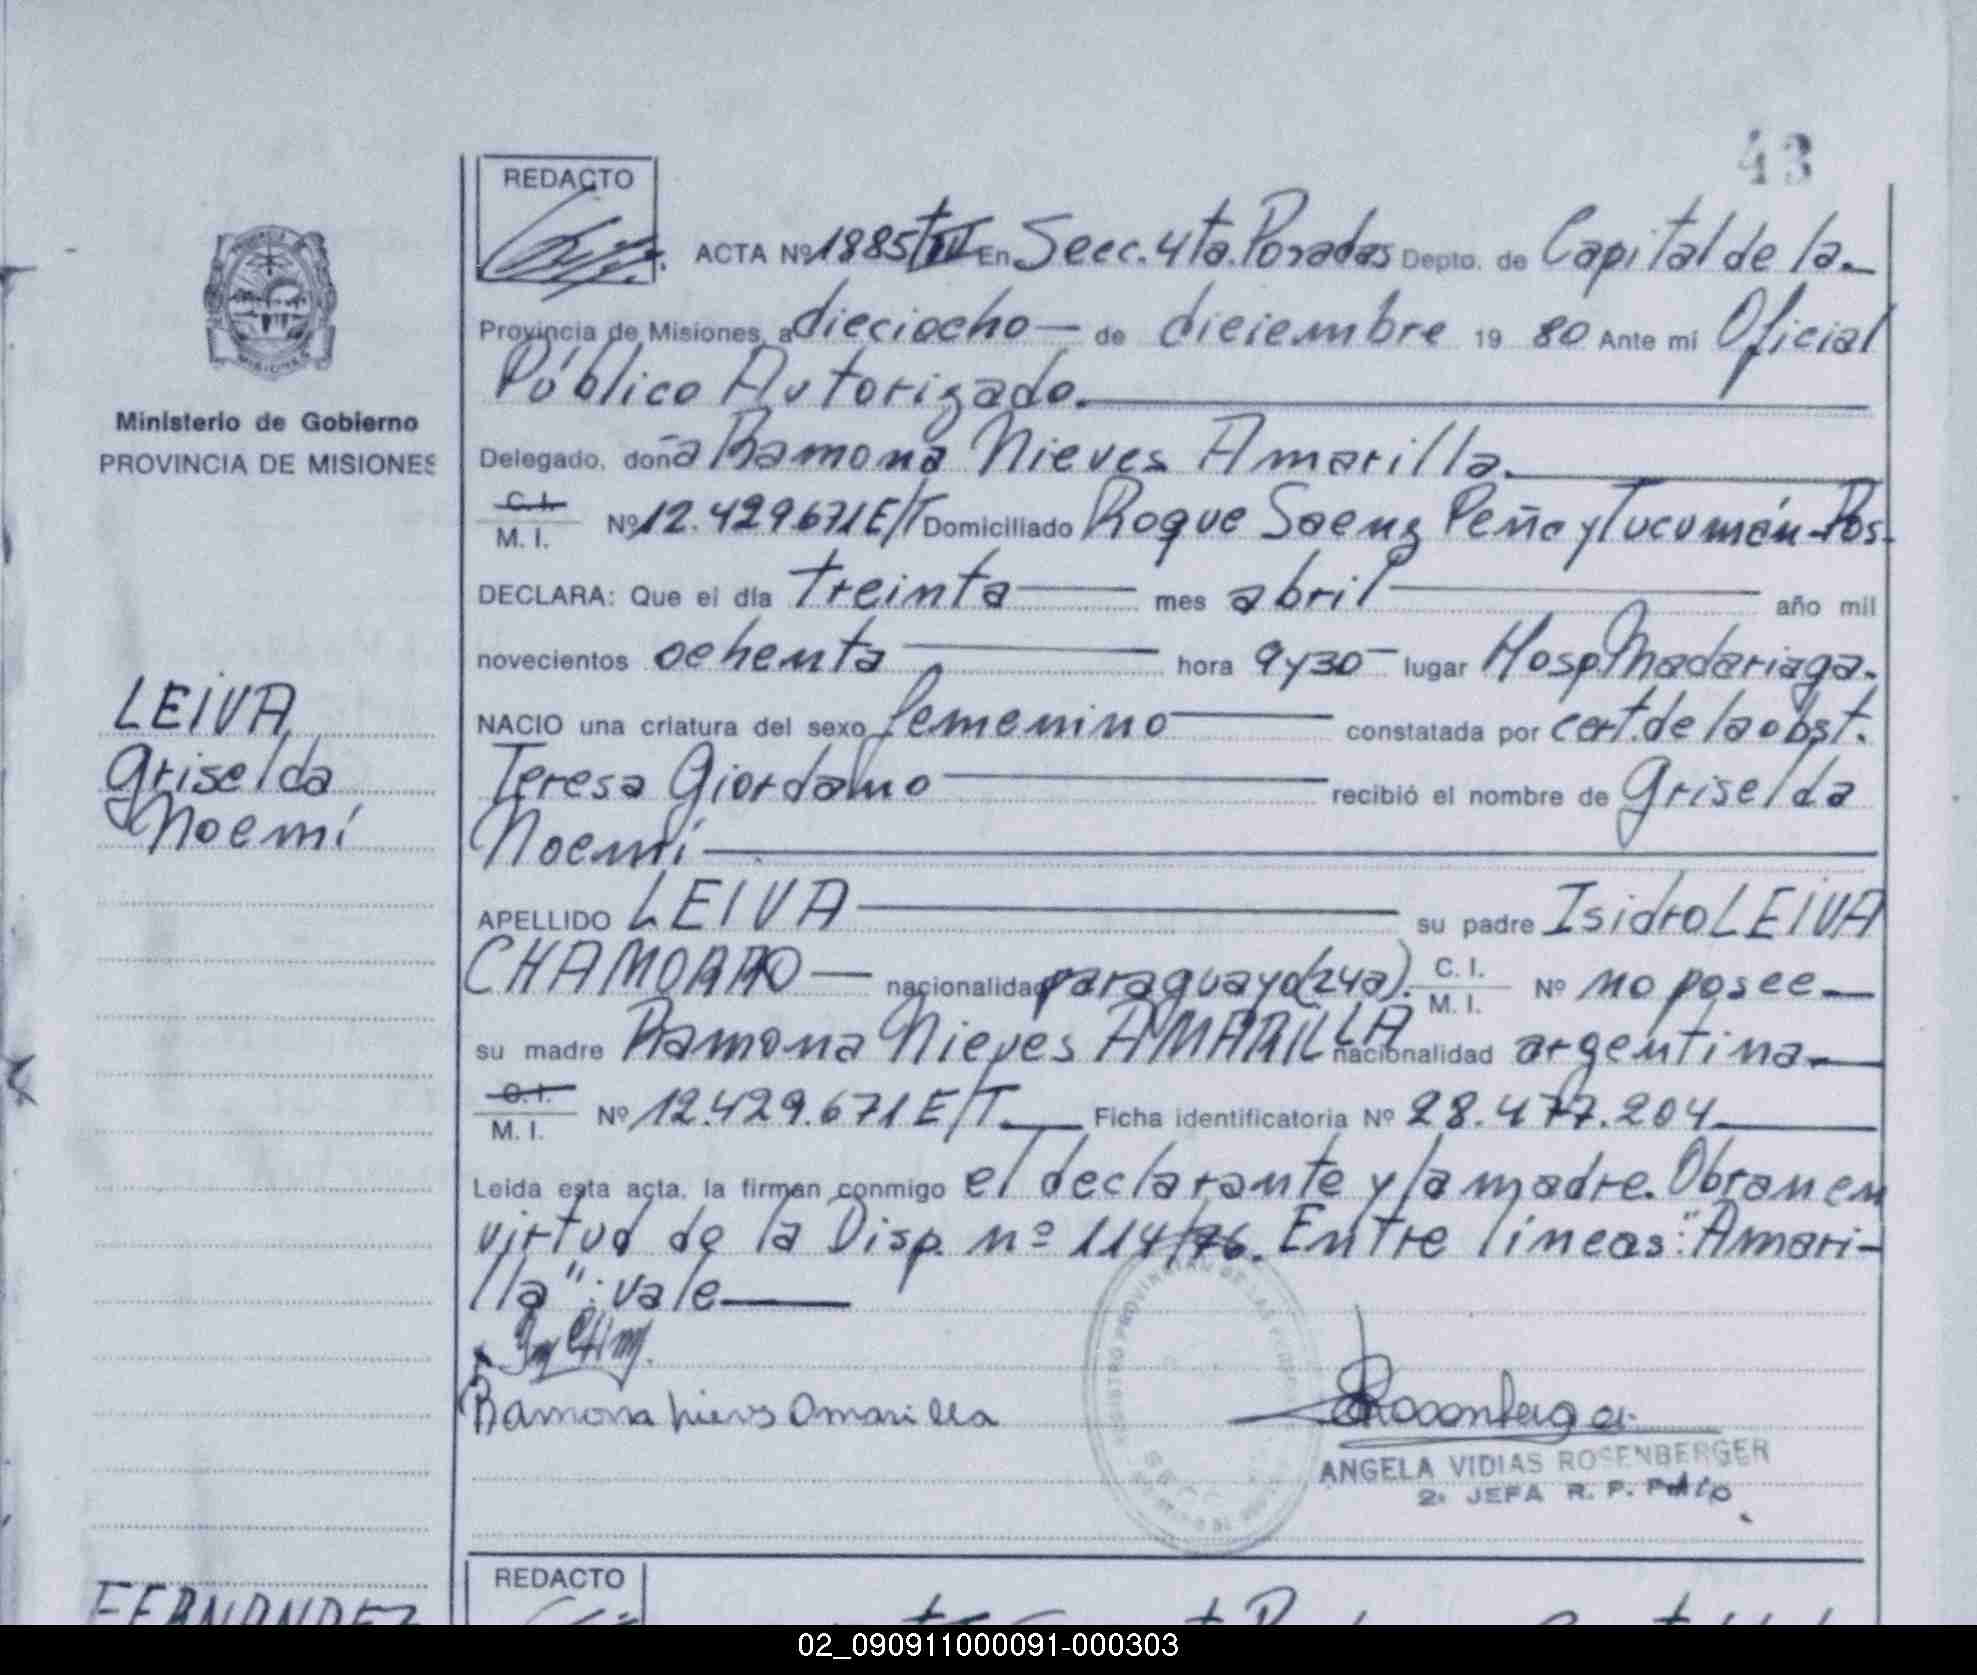 43
REDACTO
ACTA Nº 1885 En Secc. 4ta. Posadas Depto. de Capital de la
Provincia de Misiones, a dieciocho de diciembre 19 80 Ante mi Oficial
Público Autorizado.
Delegado, doña Ramona Nieves Amarilla.
C. I.
M. I. Nº 12.429.671 E/T Domiciliado Roque Saenz Peña y Tucumán-Pos.
DECLARA: Que el día treinta mes abril año mil
novecientos ochenta hora 9 y 30 lugar Hosp. Madariaga.
NACIO una criatura del sexo femenino constatada por cert. de la obst.
Teresa Giordano recibió el nombre de Griselda
Noemí
APELLIDO LEIVA su padre Isidro LEIVA
CHAMORRO nacionalidad paraguayo (24a). C. I.
M. I. Nº no posee
su madre Ramona Nieves AMARILLA nacionalidad argentina
C. I.
M. I. Nº 12.429.671 E/T. Ficha identificatoria Nº 28.477.204
Leida esta acta, la firman conmigo el declarante y la madre. Obran en
virtud de la Disp. nº 114/76. Entre líneas: "Amari-
lla": vale
Ramona nievs Amarilla
Rosenberger
ANGELA VIDIAS ROSENBERGER
2ª JEFA R. P.
REGISTRO PROVINCIAL DE LAS PERSONAS
Ministerio de Gobierno
PROVINCIA DE MISIONES
LEIVA
Griselda
Noemí
REDACTO
FERNANDEZ
02_090911000091-000303